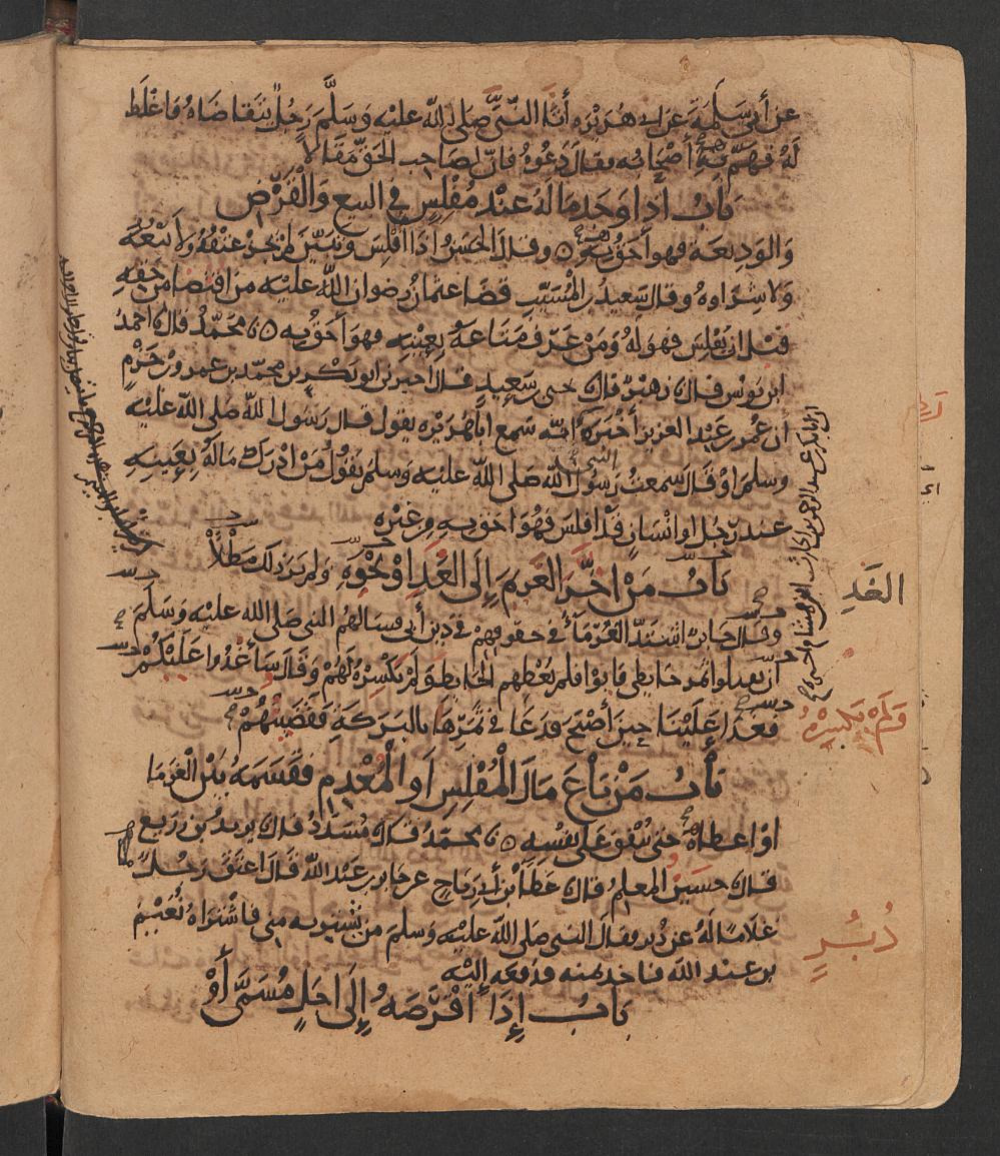 عن أبي سلمة عن ابي هريره أتا النبي صلى الله عليه وسلم رجل يتقاضاه فاغلظ
له فهم به أصحابه فقال دعوه فان لصاحب الحق مقالا
باب اذا وجد ماله عند مفلس في البيع والقرض
والوديعة فهو أحق به وقال الحسن اذا افلس وتبين لم يجز عتقه ولا بيعه
ولا شراوه وقال سعيد بن المسيب قضا عثمان رضوان الله عليه من اقتضا من حقه
قبل ان يفلس فهو له ومن عرف متاعه بعينه فهو أحق به محمد قال احمد
ابن يونس قال زهير قال يحيى بن سعيد قال اخبرني ابو بكر بن محمد بن عمرو بن حزم
أن عمر بن عبد العزيز أخبره انه سمع اباهريره يقول قال رسول الله صلى الله عليه
وسلم او قال سمعت رسول الله صلى الله عليه وسلم يقول من ادرك ماله بعينه
عند رجل او انسان قد افلس فهو احق به من غيره
باب من اخر الغريم إلى الغد او نحوه ولم ير ذلك مطلا
وقال جابر اشتد الغرما في حقوقهم في دين أبي فسالهم النبي صلى الله عليه وسلم
أن يقبلوا ثمر حايطي فابوا فلم يعطهم الحايط ولم يكسره لهم وقال سأغدوا عليكم
فغدا علينا حين أصبح فدعا في ثمرها بالبركة فقضيتهم
باب من باع مال المفلس او المعدم فقسمه بين الغرما
او اعطاه حتى ينفق على نفسه محمد قال مسدد قال يزيد بن زريع
قال حسين المعلم قال عطا بن أبي رباح عن جابر بن عبد الله قال اعتق رجل
غلاما له عن دبر فقال النبي صلى الله عليه وسلم من يشتريه مني فاشتراه نعيم
بن عبد الله فاخذ ثمنه فدفعه إليه
باب إذا اقرضه إلى اجل مسمى أو
الغد
ولم يكسره
دبر